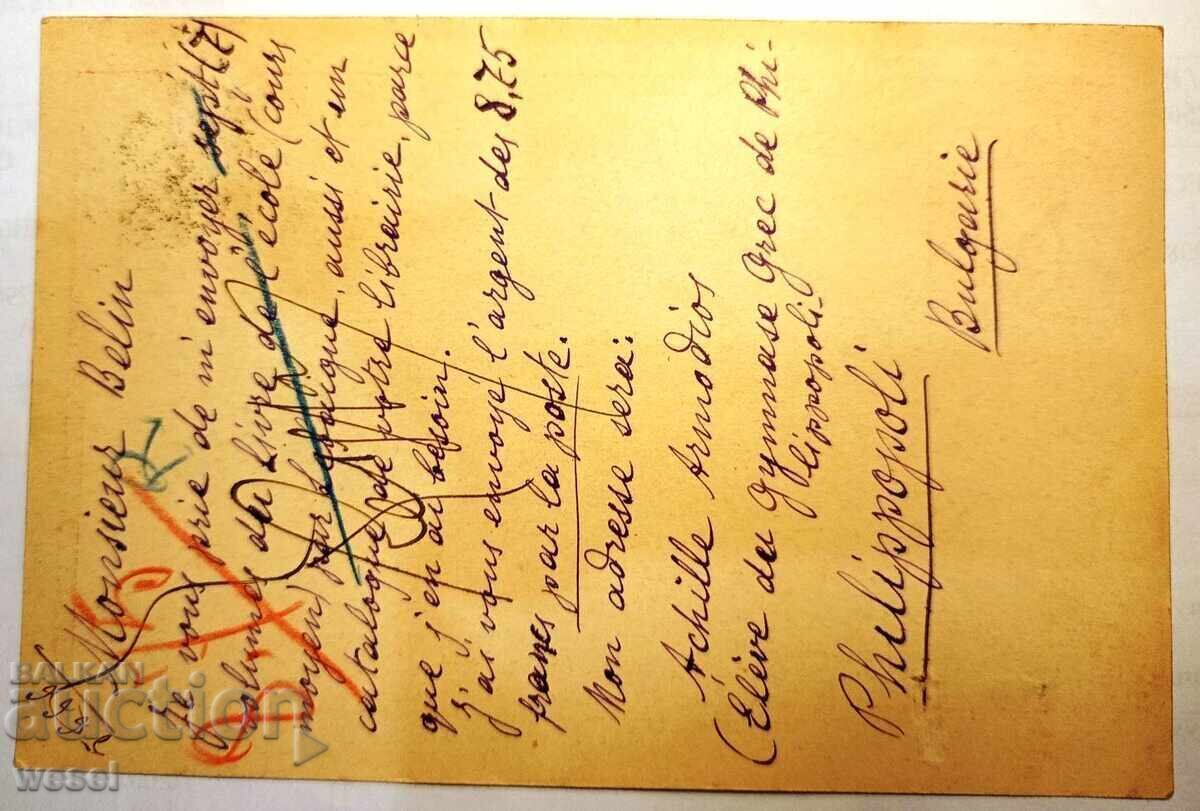 Monsieur Belin
Je vous prie de m'envoyer sept (7)
volumes du Livre de l'école (cours
moyen) par aussi et un
catalogue de votre librairie, parce
que j'en ai besoin.
J'ai vous envoyé l'argent des 8,75
francs par la poste.
Mon adresse sera:
Achille Armodios
(Élève du Gymnase Grec de Phi-
lippopoli.
Philippopoli
Bulgarie
BALKAN
auction
wesel